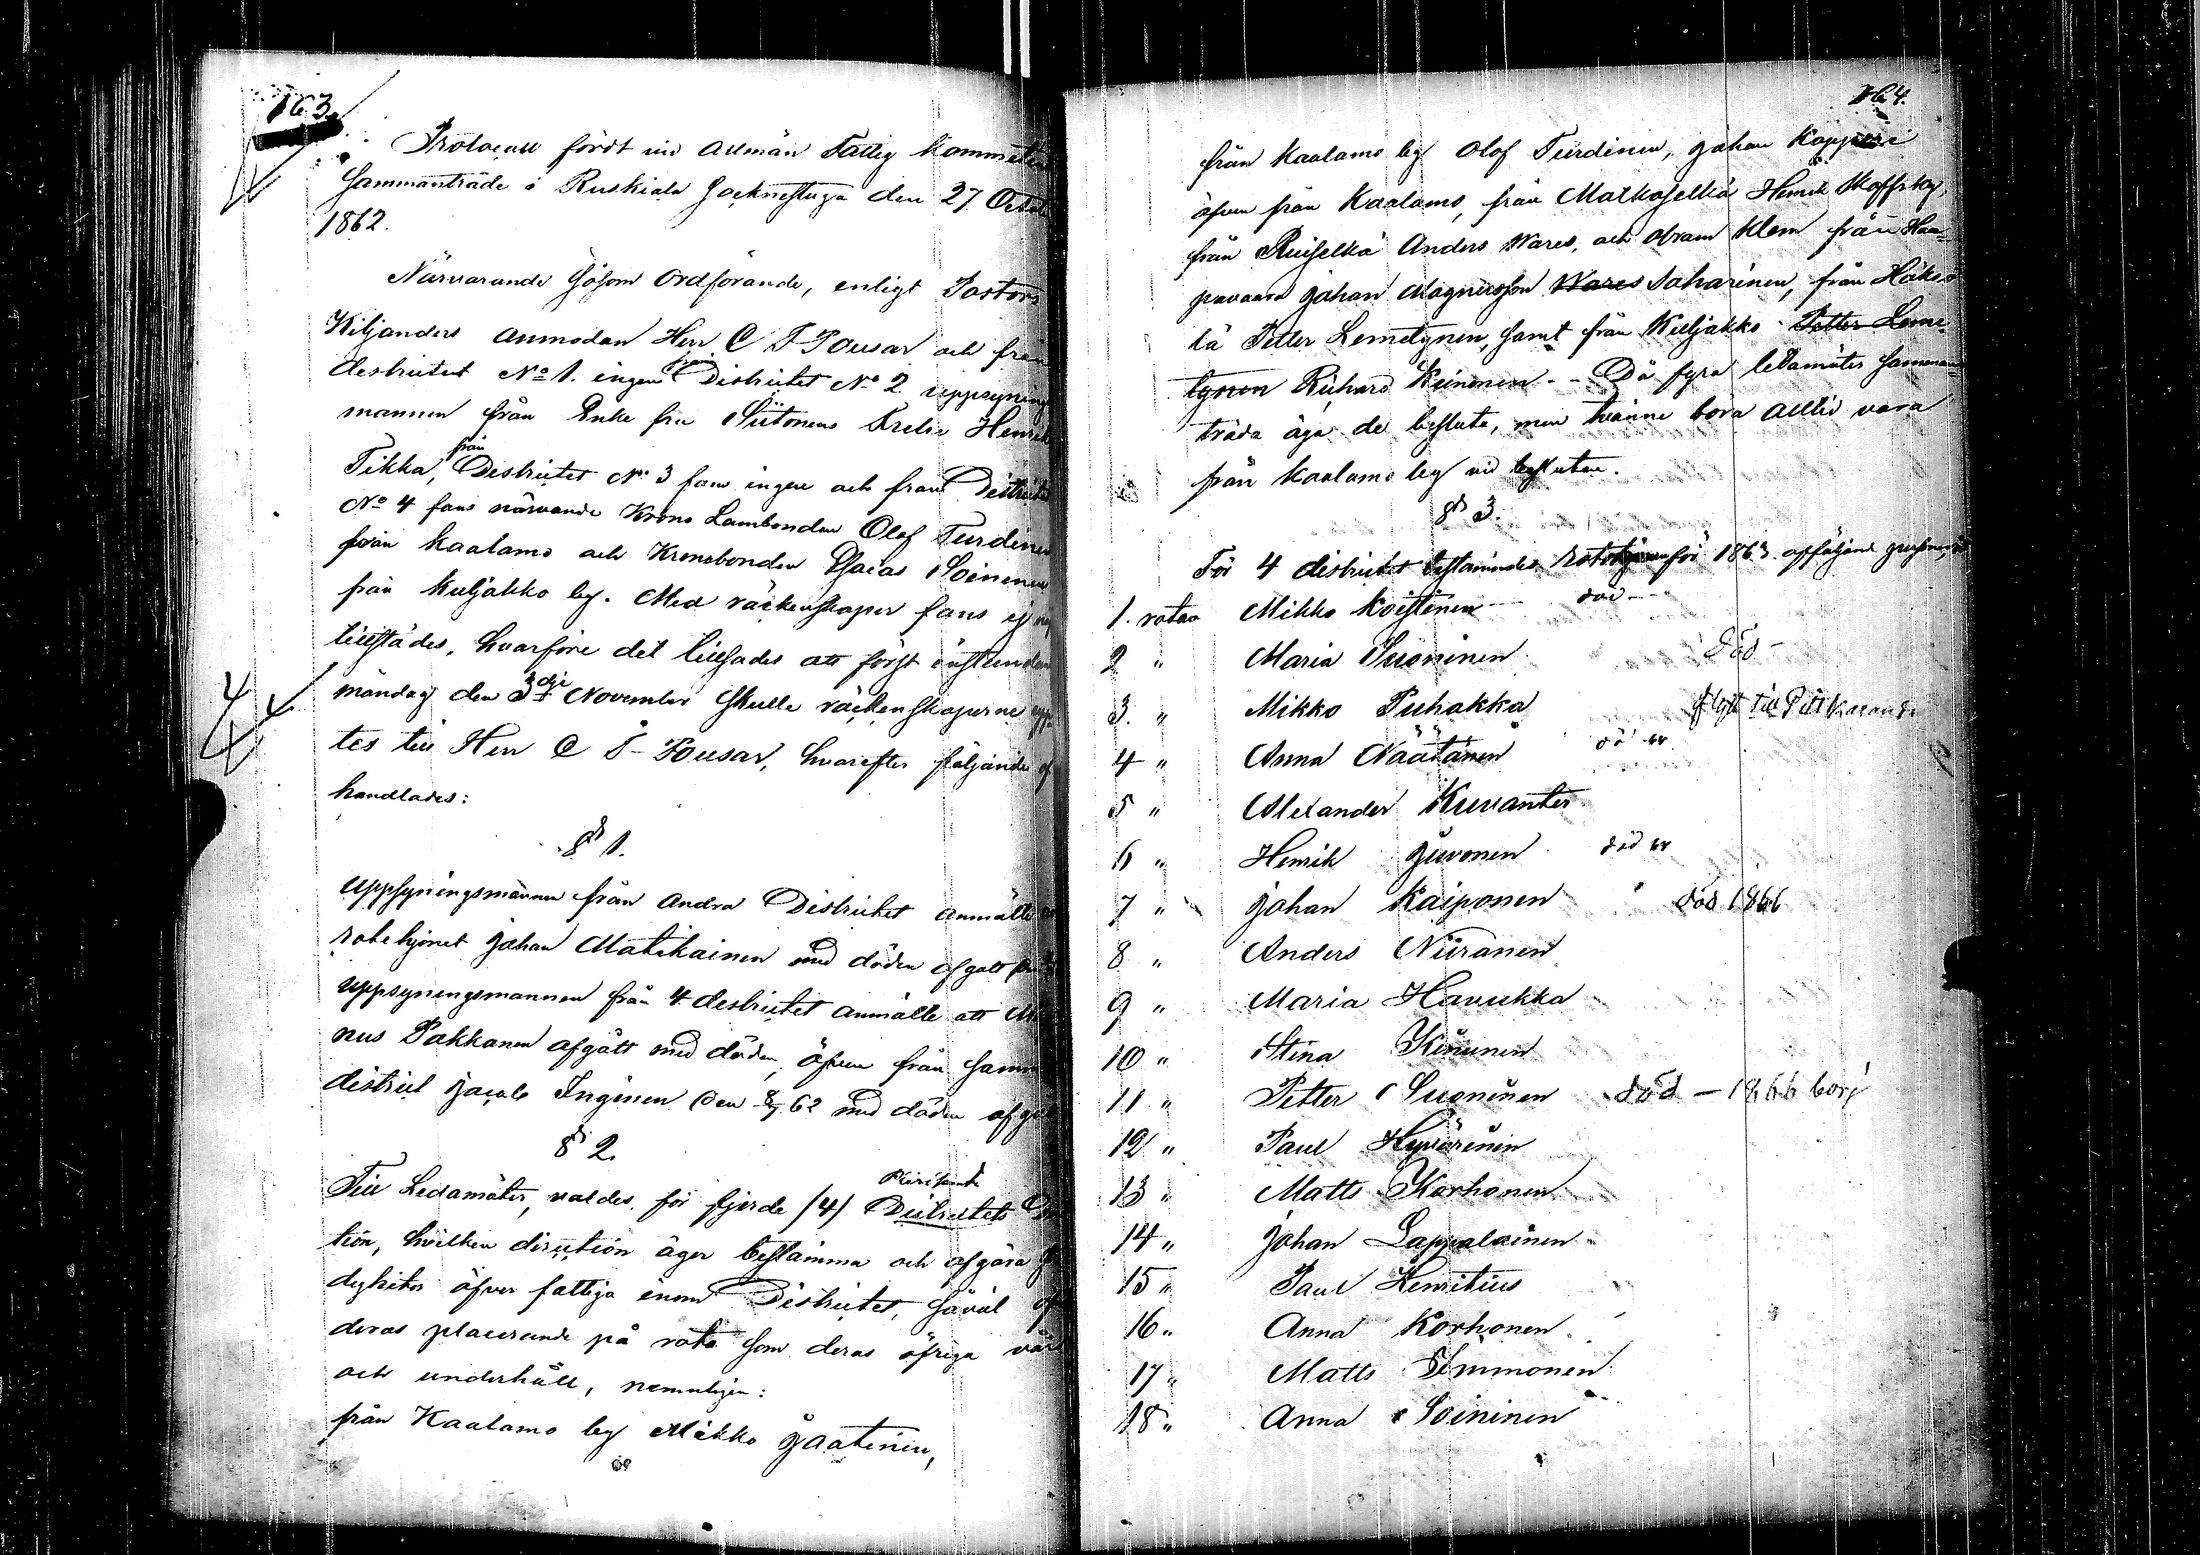 163.
Protocoll fördt vid Allmän Fattig
Sammanträde i Ruskiala Socknestuga den 27
1862.
Närvarande såsom Ordförande, enligt Pastors
Kiljanders anmodan Herr C F Pousar och från
destrictet No 1. ingen från Districtet No 2 uppsynings
mannen från Enke fru Siitonens Henrik
Tikka, från Destrictet No 3 fans ingen och från
No 4 fans närvande Krono Lambonden Olof Turdinen
från Kaalamo och Kronobonden Esaias Soininen
från Kuljakko by. Med räckenskaper fans ej
tillstädes, hvarföre det lillsades att först instundan
måndag den 3dje November skulle räckenskaperne
tes till Herr C F Pousar, hvarefter följande
handlades:
§ 1.
Uppsyningsmännen från Andra Districtet anmälte
rotehjonet Johan Matikainen med döden afgått
uppsyningsmannen från 4 destrictet anmälte att
nus Pakkanen afgått med döden, öfven från samma
district Jacob Inginen den 8/62 med döden
§ 2.
Till Ledamöter valdes för fjerde /4/ Districtets
tion, hvilken direction äger bestämma och afgöra
digheter öfver fattiga inom Districtet, såväl
deras placerande på rota som deras öfriga vård
och underhåll, nemnligen:
från Kaalamo by Mikko Jaatinen,
164.
från Kaalamo by Olof Turdinen, Johan Kapponen
äfven från Kaalamo, från Matkaselkä Henrik Skoffsky,
från Ruiselkä Anders Wares, och Abram Klem från Haa-
pavaara Johan Magnusson Wares Saharinen, från Häkse
lä Petter Lemetynen, samt från Kuljakko Petter Leme
tynen Richard Keinonen -- Då fyra ledamöter samman
träda äga de besluta, men tvänne böra alltid vara
från Kaalamo by vid besluten.
§ 3.
För 4 districtet bestämdes rotehjon för 1863
1. rotan Mikko Koistinen död
2 " Maria Suoninen död -
3. " Mikko Puhakka flytt till Pitkäranda
4 " Anna Näätänen död
5 " Alexander Kuvanter
6 " Henrik Juvonen död
7 " Johan Kaiponen död 1866
8 " Anders Niiranen
9 " Maria Havukka
10 " Stina Kinunen
11 " Petter Suoninen död - 1866
12 " Paul Hyvärinen
13 " Matts Korhonen
14 " Johan Lappalainen
15 " Paul Henritius
16 " Anna Korhonen
17 " Matts Immonen
18 " Anna Soininen